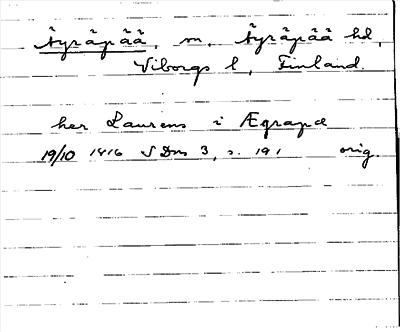 Äyräpää, m. Äyräpää hd,
Viborgs l, Finland.
her Laurens i Ægrapæ
19/10 1416 SDns 3, s. 191 orig.